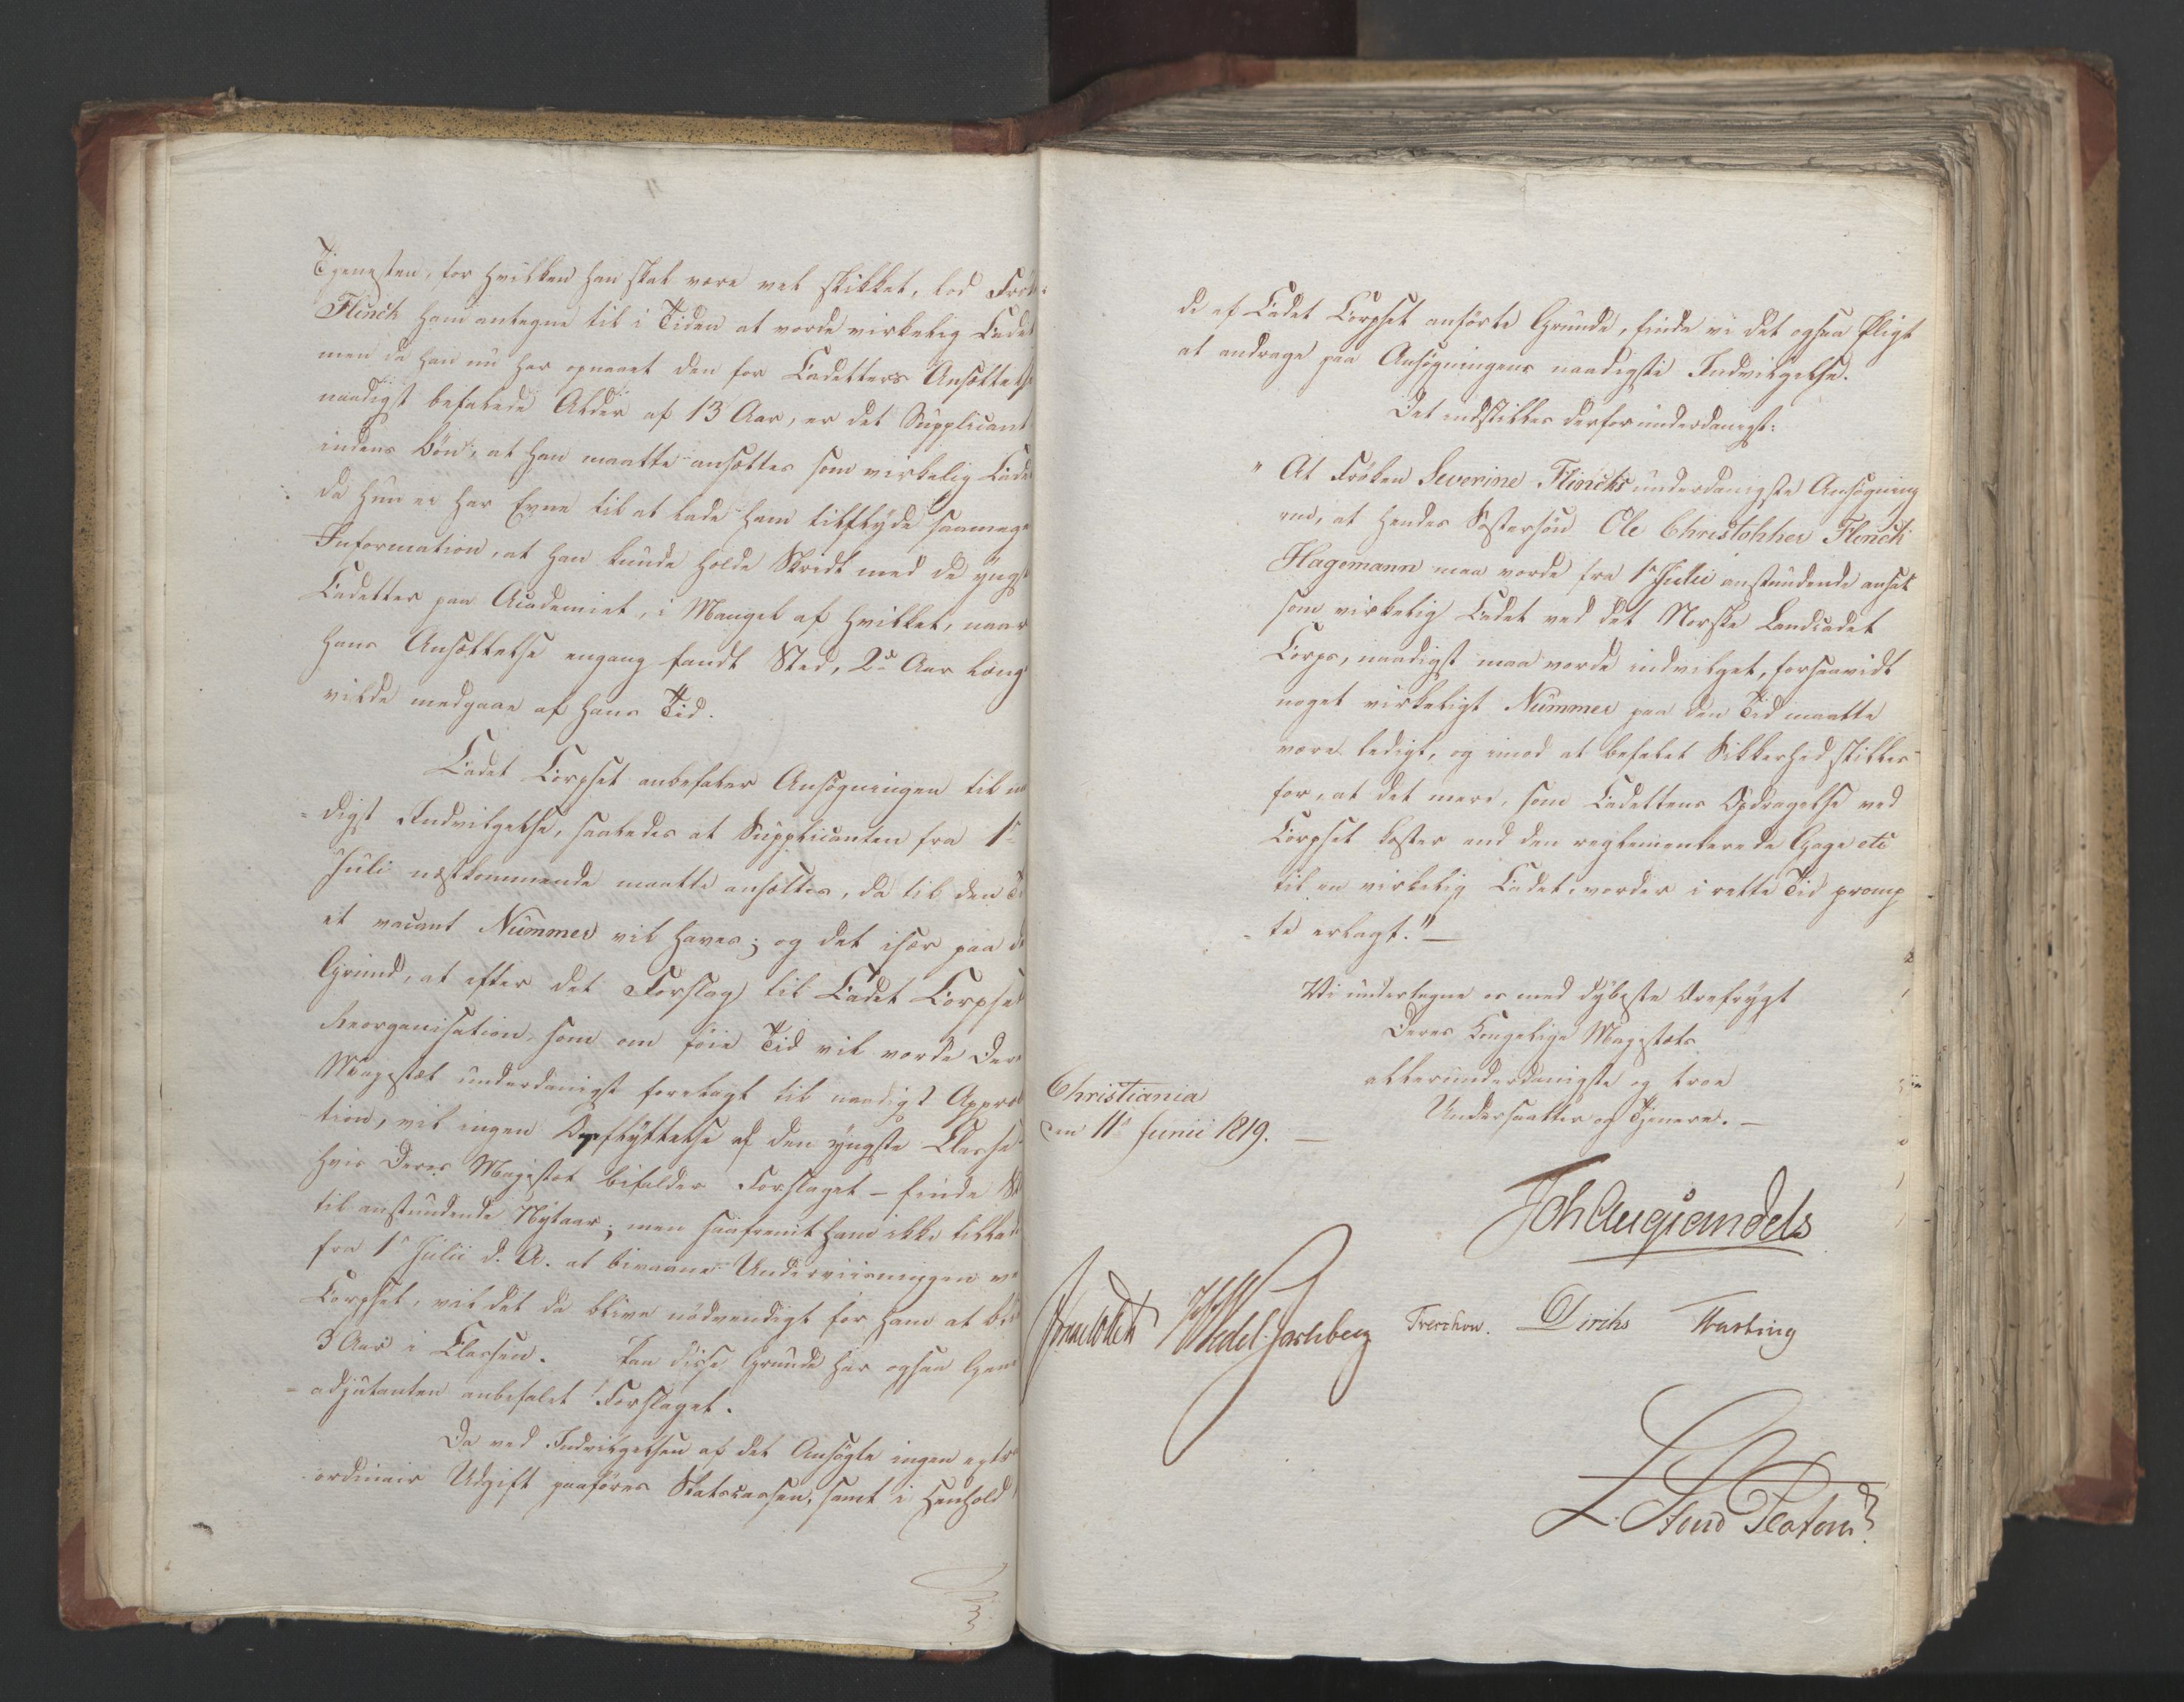 Tjenesten, for hvilken han skal være vel skikket, lod Frök
Flinck ham antegne til i Tiden at vorde virkelig Cadet
men da han nu har opnaaet den for Cadetters Ansættelse
naadigst befalede Alder af 13 Aar, er det Supplicant
indens Bön, at han maatte ansættes som virkelig Cadet
da hun ei har Evne til at lade ham tilflyde saameget
Information, at han kunde holde Skridt med de yngste
Cadetter paa Academiet, i Mangel af hvilket, naar
hans Ansættelse engang fandt Sted, 2de Aar læng
vilde medgaae af hans Tid.
Cadet Corpset anbefaler Ansögningen til naa
digst Indvilgelse, saaledes at Supplicanten fra 1ste
Juli næstkommende maatte ansættes, da til den Tid
et vacant Nummer vil haves; og det især paa d
Grund, at efter det Forslag til Cadet Corpset
Reorganisation, som om föie Tid vil vorde Deres
Majestæt underdanigst forelagt til naadigst Approba
tion, vil ingen Opflyttelse af den yngste Classe
hvis Deres Majestæt bifalder Forslaget – finde St
til anstundende Nytaar; men saafremt ham ikke tillad
fra 1ste Julii d. A. at bivaane Underviisningen ve
Corpset, vil det da blive nödvendigt for ham at bli
3 Aar i Classen. Paa disse Grunde har ogsaa Gene
adjutanten anbefalet Forslaget.
Da ved Indvilgelsen af det Ansögte ingen extra
ordinair Udgift paaföres Statscassen, samt i Henhold
de af Cadet Corpset anförte Grunde, finde vi det ogsaa Pligt
at andrage paa Ansögningens naadigste Indvilgelse.
Det indstilles derfor underdanigst:
" At Fröken Severine Flincks underdanigste Ansögning
om, at hendes Söstersön Ole Christopher Flinck
Hagemann maa vorde fra 1ste Julii anstundende ansat
som virkelig Cadet ved det Norske Landcadet
Corps, naadigst maa vorde indvilget, forsaavidt
noget virkeligt Nummer paa den Tid maatte
være ledigt, og imod at befalet Sikkerhed stilles
for, at det mere, som Cadettens Opdragelse ved
Corpset koster end den reglementerede Gage etc
til en virkelig Cadet, vorder i rette Tid promp
te erlagt."
Vi undertegne os med dybeste Ærefrygt
Deres Kongelige Majestæts
allerunderdanigste og troe
Undersaatter og Tjenere.
Christiania
den 11te Junii 1819.
Joh Aug Sandels
Wedel Jarlsberg Treschow. Diriks Fasting
L. Stoud Platou